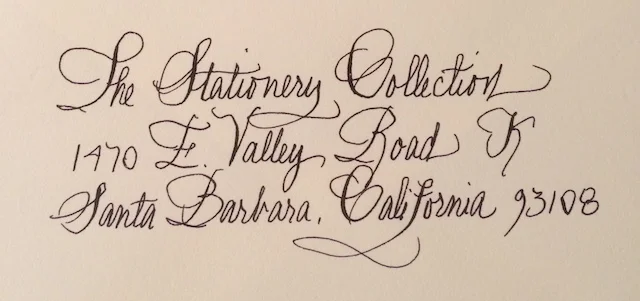 The Stationery Collection
1470 E. Valley Road K
Santa Barbara, California 93108